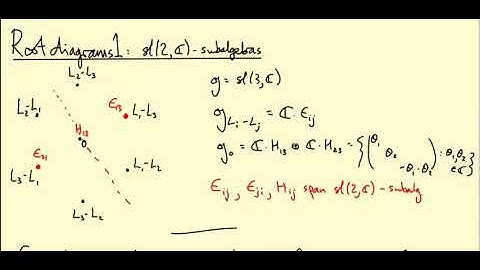 Root diagrams 1: sl(2,ℂ)-subalgebras
L₂-L₃
E₁₃
L₂-L₁
L₁-L₃
H₁₃
0
E₃₁
L₃-L₁
L₁-L₂
L₃-L₂
g = sl(3,ℂ)
g_{Lᵢ-Lⱼ} = ℂ·Eᵢⱼ
g₀ = ℂ·H₁₃ ⊕ ℂ·H₂₃ = {(θ₁ θ₂ -θ₁-θ₂) : θ₁,θ₂ ∈ ℂ}
Eᵢⱼ, Eⱼᵢ, Hᵢⱼ span sl(2,ℂ)-subalg